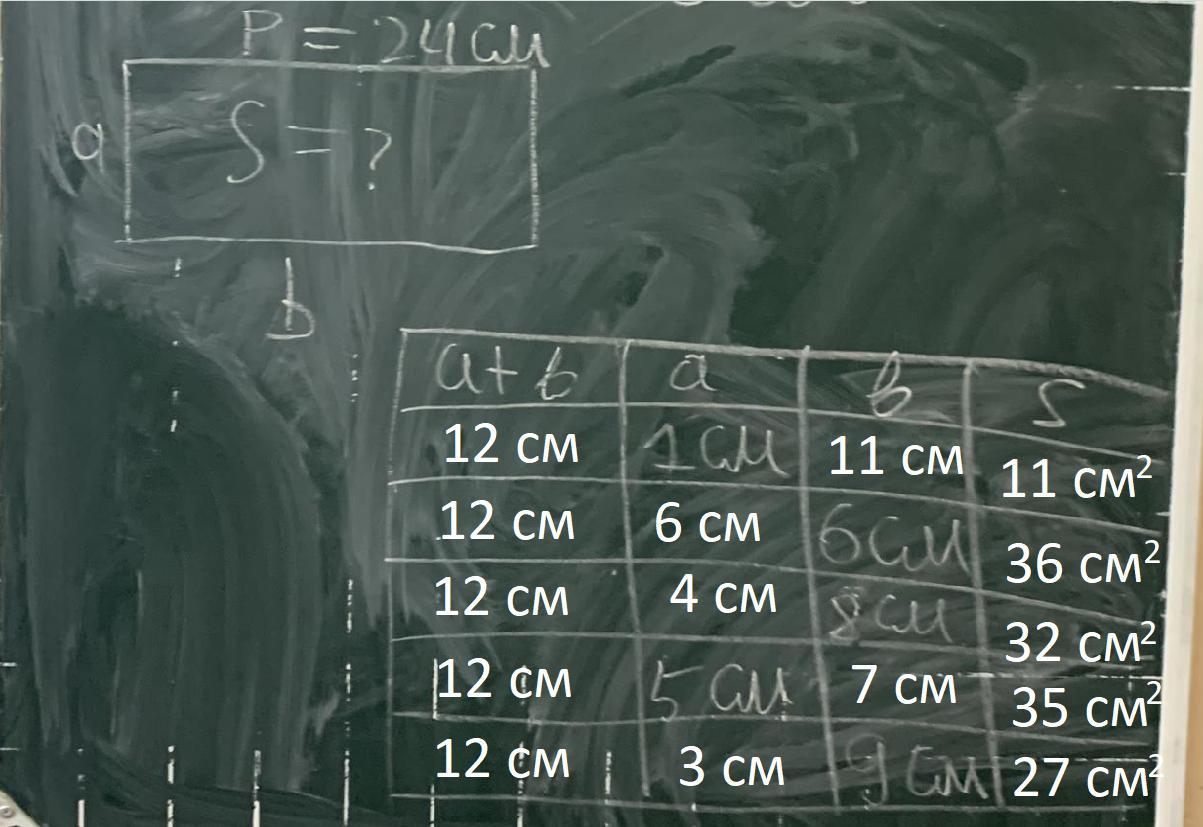 P = 24 см
a
S = ?
b
a+b a в S
12 см 1 см 11 см 11 см²
12 см 6 см 6 см 36 см²
12 см 4 см 8 см 32 см²
12 см 5 см 7 см 35 см²
12 см 3 см 9 см 27 см²